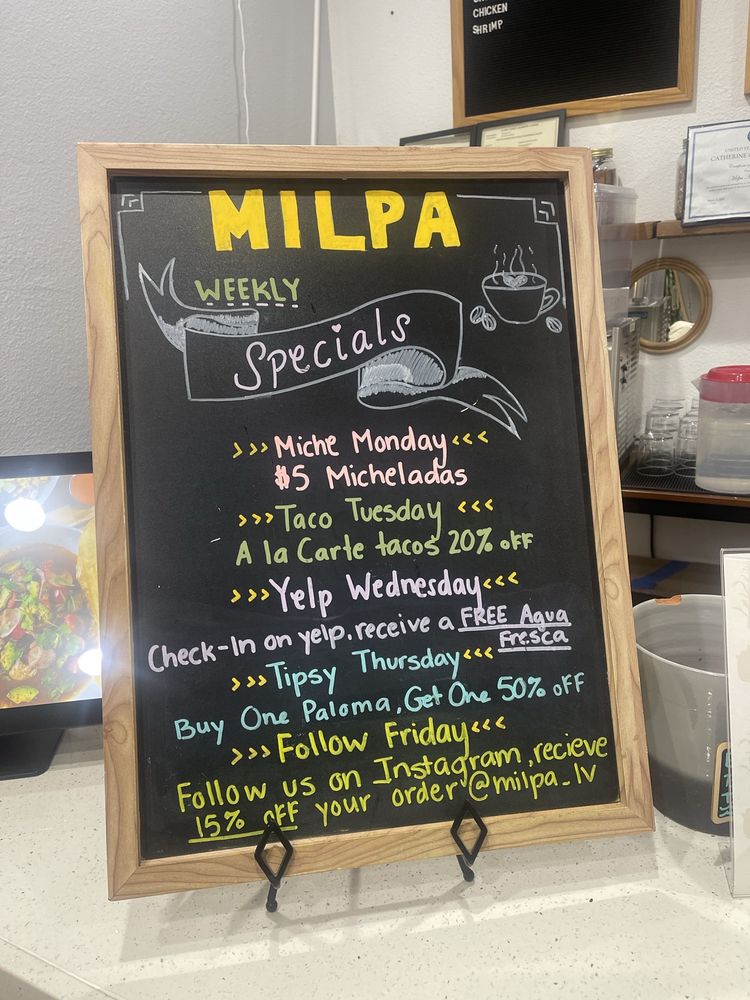 CHICKEN
SHRIMP
CATHERINE
MILPA
WEEKLY
Specials
>>> Miche Monday <<<
$5 Micheladas
>>> Taco Tuesday <<<
A la Carte tacos 20% off
>>> Yelp Wednesday <<<
Check-In on yelp.receive a FREE Agua
Fresca
>>> Tipsy Thursday <<<
Buy One Paloma, Get One 50% off
>>> Follow Friday <<<
Follow us on Instagram, recieve
15% off your order @milpa_lv